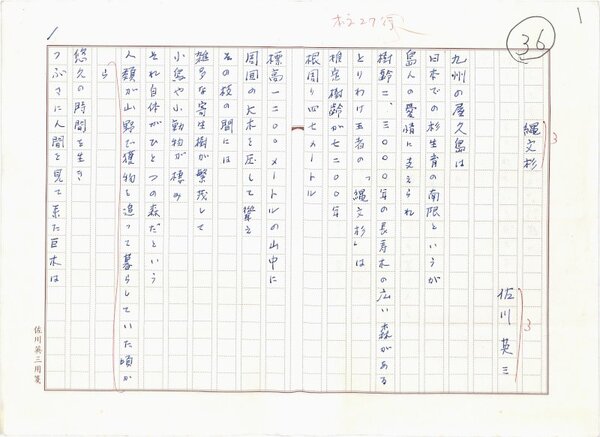 36
1
本文27行
縄文杉
3
佐川英三
3
九州の屋久島は
日本での杉生育の南限というが
島人の愛情に支えられ
樹齢二、三〇〇〇年の長寿木の広い森がある
とりわけ王者の「縄文杉」は
推定樹齢が七二〇〇年
根周り四七メートル
標高一二〇〇メートルの山中に
周囲の大木を圧して聳え
その枝の間には
雑多な寄生樹が繁茂して
小鳥や小動物が棲み
それ自体がひとつの森だという
人類が山野で獲物を追って暮らしていた頃か
ら
悠久の時間を生き
つぶさに人間を見て来た巨木は
佐川英三用箋